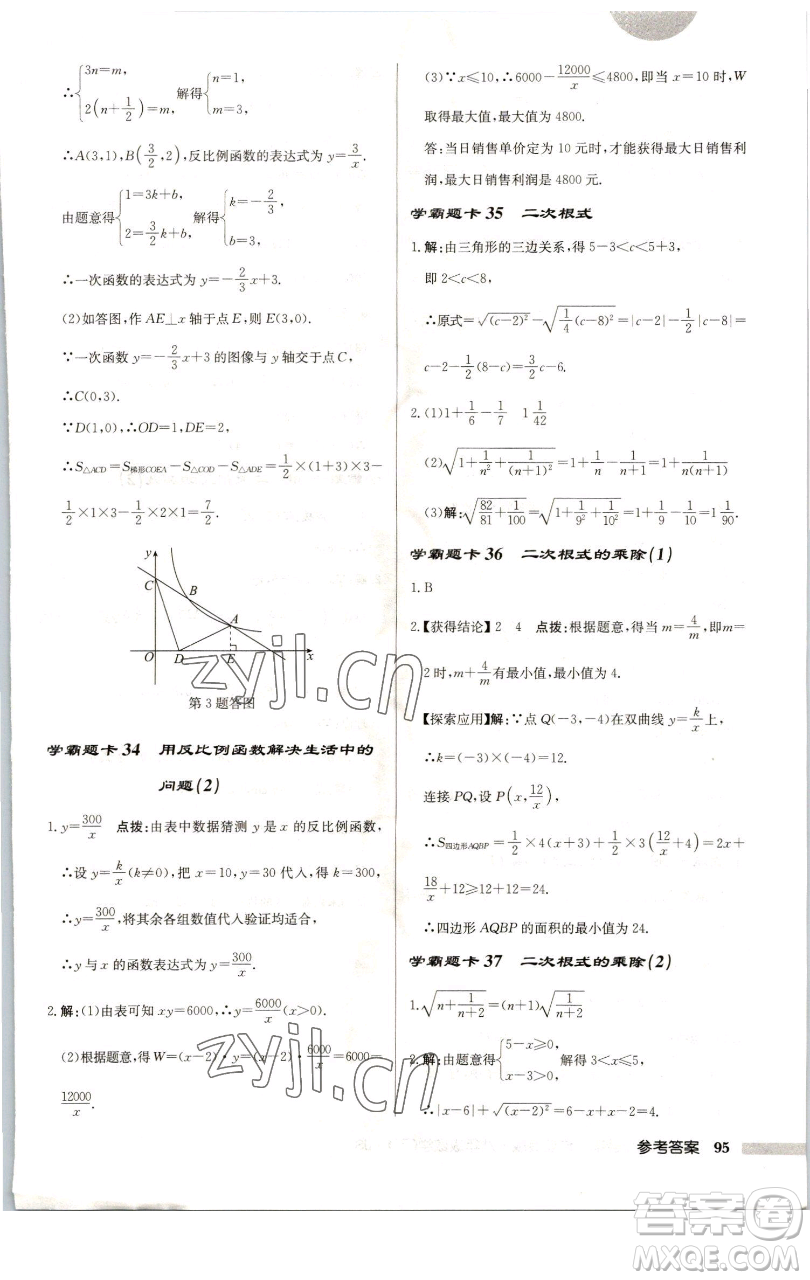 ∴{3n=m, 2(n+1/2)=m, 解得{n=1, m=3,
∴A(3,1),B(3/2,2),反比例函数的表达式为 y=3/x.
由题意得{1=3k+b, 2=3/2k+b, 解得{k=-2/3, b=3,
∴一次函数的表达式为 y=-2/3x+3.
(2)如答图,作 AE⊥x 轴于点 E,则 E(3,0).
∵一次函数 y=-2/3x+3 的图像与 y 轴交于点 C,
∴C(0,3).
∵D(1,0),∴OD=1,DE=2.
∴S△ACD=S梯形COEA-S△COD-S△ADE=1/2×(1+3)×3-
1/2×1×3-1/2×2×1=7/2.
y
C
B
A
O D E x
第 3 题答图
学霸题卡 34 用反比例函数解决生活中的
问题(2)
1.y=300/x 点拨:由表中数据猜测 y 是 x 的反比例函数,
∴设 y=k/x(k≠0),把 x=10,y=30 代入,得 k=300,
∴y=300/x,将其余各组数值代入验证均适合,
∴y 与 x 的函数表达式为 y=300/x.
2.解:(1)由表可知 xy=6000,∴y=6000/x(x>0).
(2)根据题意,得 W=(x-2)·y=(x-2)·6000/x=6000-
12000/x.
(3)∵x≤10,∴6000-12000/x≤4800,即当 x=10 时,W
取得最大值,最大值为 4800.
答:当日销售单价定为 10 元时,才能获得最大日销售利
润,最大日销售利润是 4800 元.
学霸题卡 35 二次根式
1.解:由三角形的三边关系,得 5-3<c<5+3,
即 2<c<8,
∴原式=√(c-2)²-√(1/4(c-8)²)=|c-2|-1/2|c-8|=
c-2-1/2(8-c)=3/2c-6.
2.(1)1+1/6-1/7 1 1/42
(2)√(1+1/n²+1/(n+1)²)=1+1/n-1/(n+1)=1+1/(n(n+1))
(3)解:√(82/81+1/100)=√(1+1/9²+1/10²)=1+1/9-1/10=1 1/90.
学霸题卡 36 二次根式的乘除(1)
1.B
2.【获得结论】2 4 点拨:根据题意,得当 m=4/m,即m=
2 时,m+4/m有最小值,最小值为 4.
【探索应用】解:∵点 Q(-3,-4)在双曲线 y=k/x上,
∴k=(-3)×(-4)=12.
连接 PQ,设 P(x,12/x),
∴S四边形AQBP=1/2×4(x+3)+1/2×3(12/x+4)=2x+
18/x+12≥12+12=24.
∴四边形 AQBP 的面积的最小值为 24.
学霸题卡 37 二次根式的乘除(2)
1.√(n+1/(n+2))=(n+1)√(1/(n+2))
2.解:由题意得{5-x≥0, x-3>0, 解得 3<x≤5,
∴|x-6|+√(x-2)²=6-x+x-2=4.
参考答案 95
zyjl.cn
zyjl.cn
答案圈
MXQE.COM